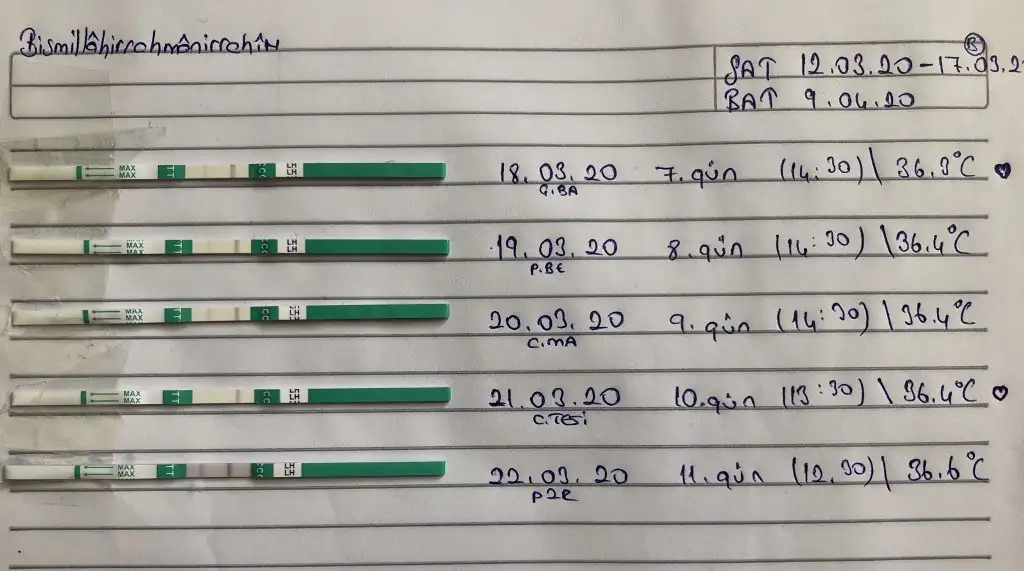 Bismillâhirrahmânirrahîm
SAT 12.03.20-17.03.2
BAT 9.04.20
MAX MAX TT CC LH LH 18.03.20 7.gün (14:30) \ 36.3°C
Ç.BA
MAX MAX TT CC LH LH 19.03.20 8.gün (14:30) \ 36.4°C
P.BE
MAX MAX TT CC LH LH 20.03.20 9.gün (14:30) \ 36.4°C
C.MA
MAX MAX TT CC LH LH 21.03.20 10.gün (13:30) \ 36.4°C
C.TESİ
MAX MAX TT CC LH LH 22.03.20 11.gün (12.30) \ 36.6°C
PZR